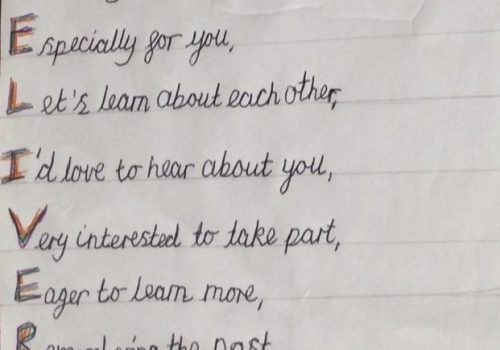 Especially for you,
Let's learn about each other,
I'd love to hear about you,
Very interested to take part,
Eager to learn more,
the past